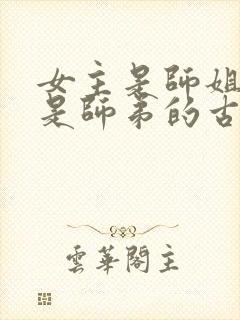 女主是師姐
是師弟的古
雲華閣主